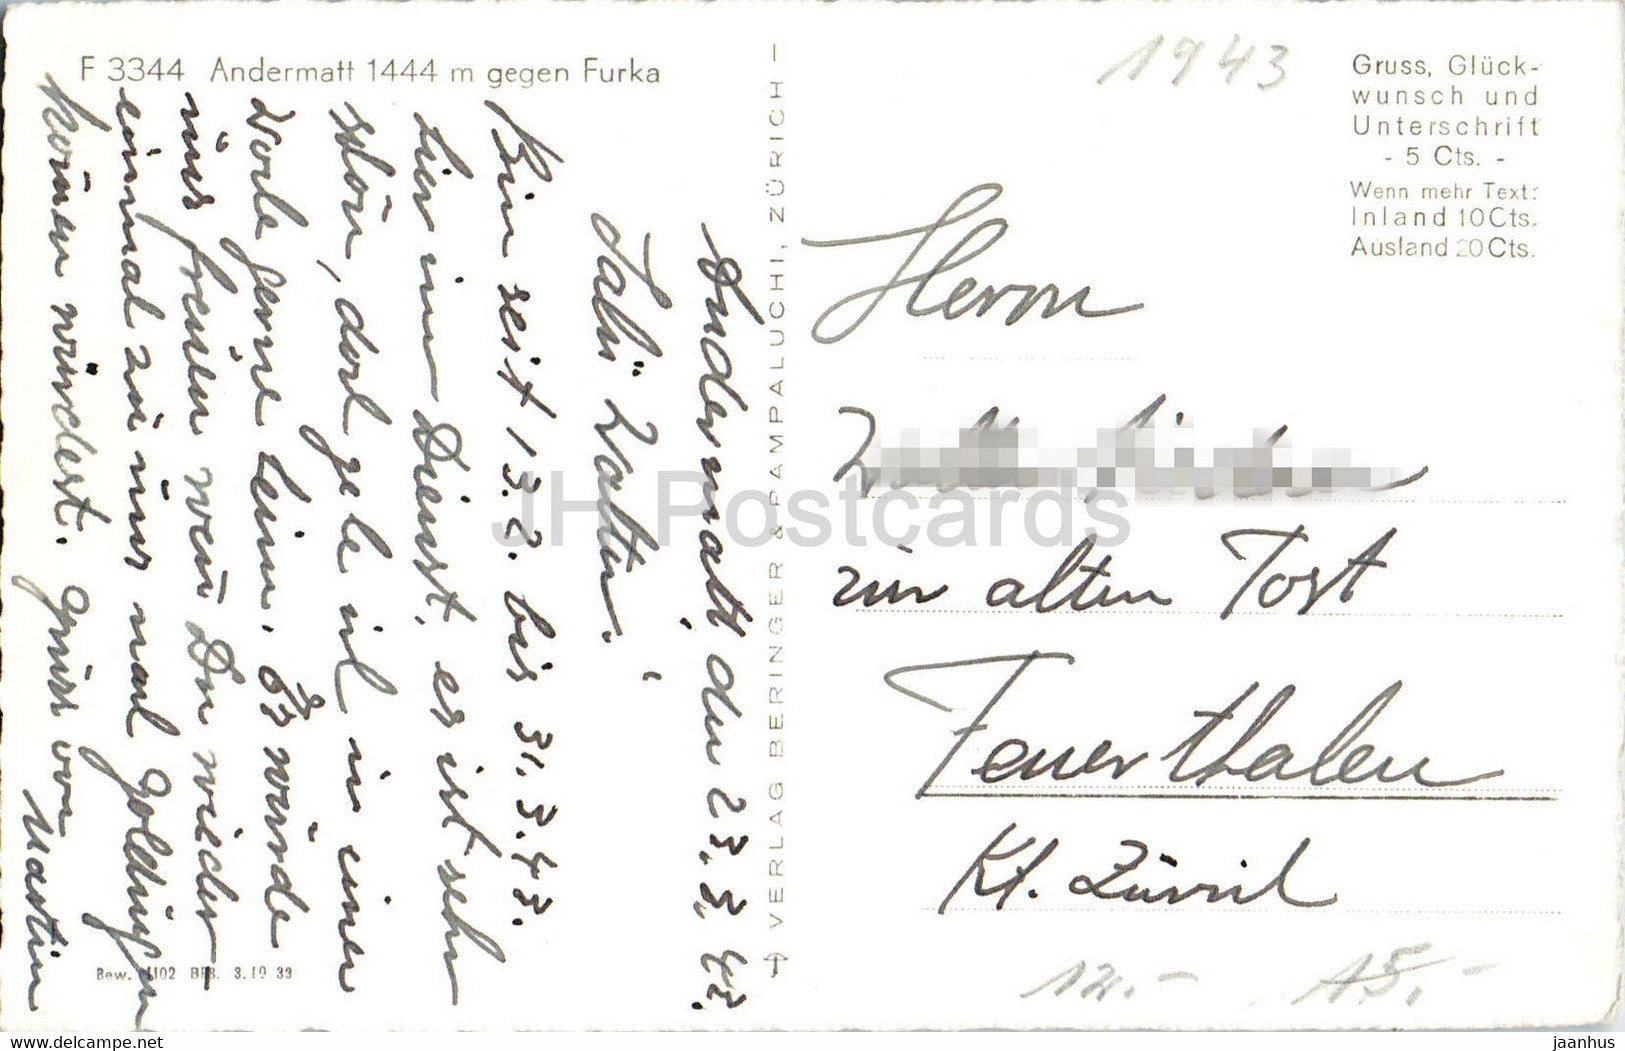 F 3344 Andermatt 1444 m gegen Furka
1943
Gruss, Glück-
wunsch und
Unterschrift
- 5 Cts. -
Wenn mehr Text:
Inland 10 Cts.
Ausland 20 Cts.
Andermatt den 23. 3. 43.
Salü Walter!
Bin seit 13.2. bis 31.3.43.
hier im Dienst, es ist sehr
schön, doch gehe ich in einer
Woche gerne heim. Es würde
mich freuen wenn Du wieder
einmal zu uns nach
kommen würdest. Gruss von
Martin
VERLAG BERINGER & PAMPALUCHI, ZÜRICH
Herrn
zur alten Post
Feuerthalen
Kt. Zürich
Bew. 1102 BRB. 3.10 39
12.- 15.-
JH Postcards
delcampe.net
jaanhus